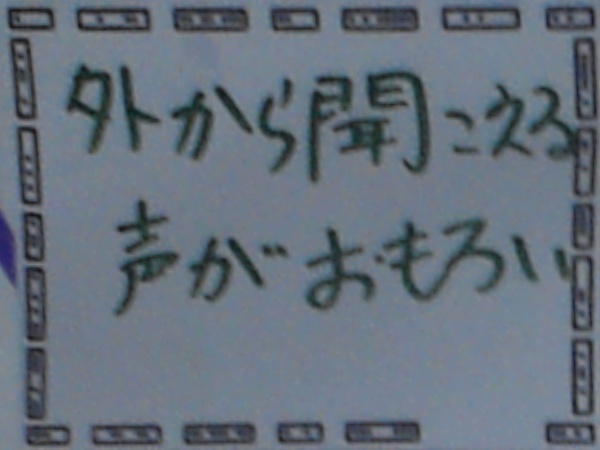 外から聞こえる
声がおもろい